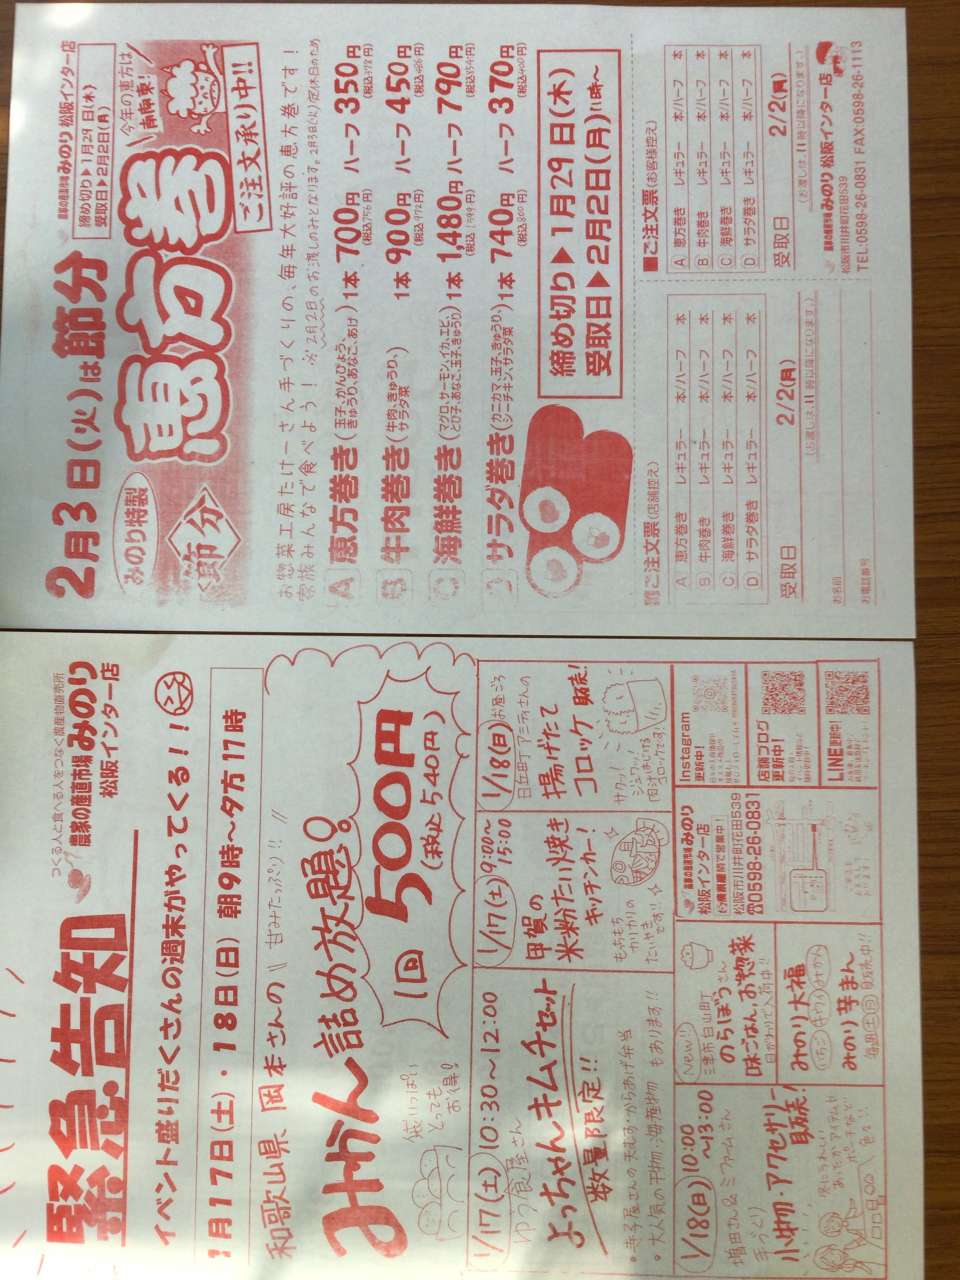 2月3日(火)は節分
農家の産直市場 みのり 松阪インター店
締め切り▶1月29日(木)
受取日▶2月2日(月)
みのり特製
節分
恵方巻
今年の恵方は
ご注文承り中!!
お惣菜工房たけーさん手づくりの、毎年大好評の恵方巻です!
家族みんなで食べよう! ※2月2日のお渡しのみとなります。2月3日(火)定休日のため
A 恵方巻き(玉子、かんぴょう、きゅうり、あなご、あげ) 1本 700円(税込756円) ハーフ 350円(税込378円)
B 牛肉巻き(牛肉、きゅうり、サラダ菜) 1本 900円(税込972円) ハーフ 450円(税込486円)
C 海鮮巻き(マグロ、サーモン、イカ、エビ、とび子、あなご、玉子、きゅうり) 1本 1,480円(税込1599円) ハーフ 790円(税込854円)
D サラダ巻き(カニカマ、玉子、きゅうり、シーチキン、サラダ菜) 1本 740円(税込800円) ハーフ 370円(税込400円)
締め切り▶1月29日(木)
受取日▶2月2日(月)11時〜
ご注文票(店舗控え)
A 恵方巻き レギュラー 本/ハーフ 本
B 牛肉巻き レギュラー 本/ハーフ 本
C 海鮮巻き レギュラー 本/ハーフ 本
D サラダ巻き レギュラー 本/ハーフ 本
受取日 2/2(月)
(お渡しは、11時以降になります。)
お名前
お電話番号
■ご注文票(お客様控え)
A 恵方巻き レギュラー 本/ハーフ 本
B 牛肉巻き レギュラー 本/ハーフ 本
C 海鮮巻き レギュラー 本/ハーフ 本
D サラダ巻き レギュラー 本/ハーフ 本
受取日 2/2(月)
(お渡しは、11時以降になります。)
農家の産直市場 みのり 松阪インター店
松阪市川井町花田539
TEL:0598-26-0831 FAX:0598-26-1113
緊急告知
つくる人と食べる人をつなぐ農産物直売所
農家の産直市場 みのり
松阪インター店
イベント盛りだくさんの週末がやってくる!!
1月17日(土)・18日(日) 朝9時〜夕方17時
和歌山県、岡本さんの 甘みたっぷり!!
みかん詰め放題。
1回 500円
(税込540円)
袋いっぱい
とっても
お得!
1/17(土) 10:30〜12:00
ゆう食屋さん
よっちゃんキムチセット
数量限定!!
・大人気の干物・海産物もあります!!
1/17(土) 9:00〜15:00
甲賀の
米粉たい焼き
キッチンカー!
もちもち
カリカリの
たいやき
です!!
1/18(日) お昼ごろ
日丘町アミティさんの
揚げたて
コロッケ 販売!
サクッ!
ジュワッ!
肉汁はじける
コロッケです!
1/18(日) 10:00〜13:00
増田さん&ミファムさん
手づくり
小中物・アクセサリー
販売!
New!!
三津市白山町
のらぼうさん
味ごはん、お惣菜
日がわりで入荷中!!
みのり大福
いちご キウイ みかん
みのり芋まん
毎週土日 販売中!!
農家の産直市場 みのり
松阪インター店
松阪市川井町花田539
☎0598-26-0831
Instagram
更新中!
店舗ブログ
更新中!
LINE更新中!